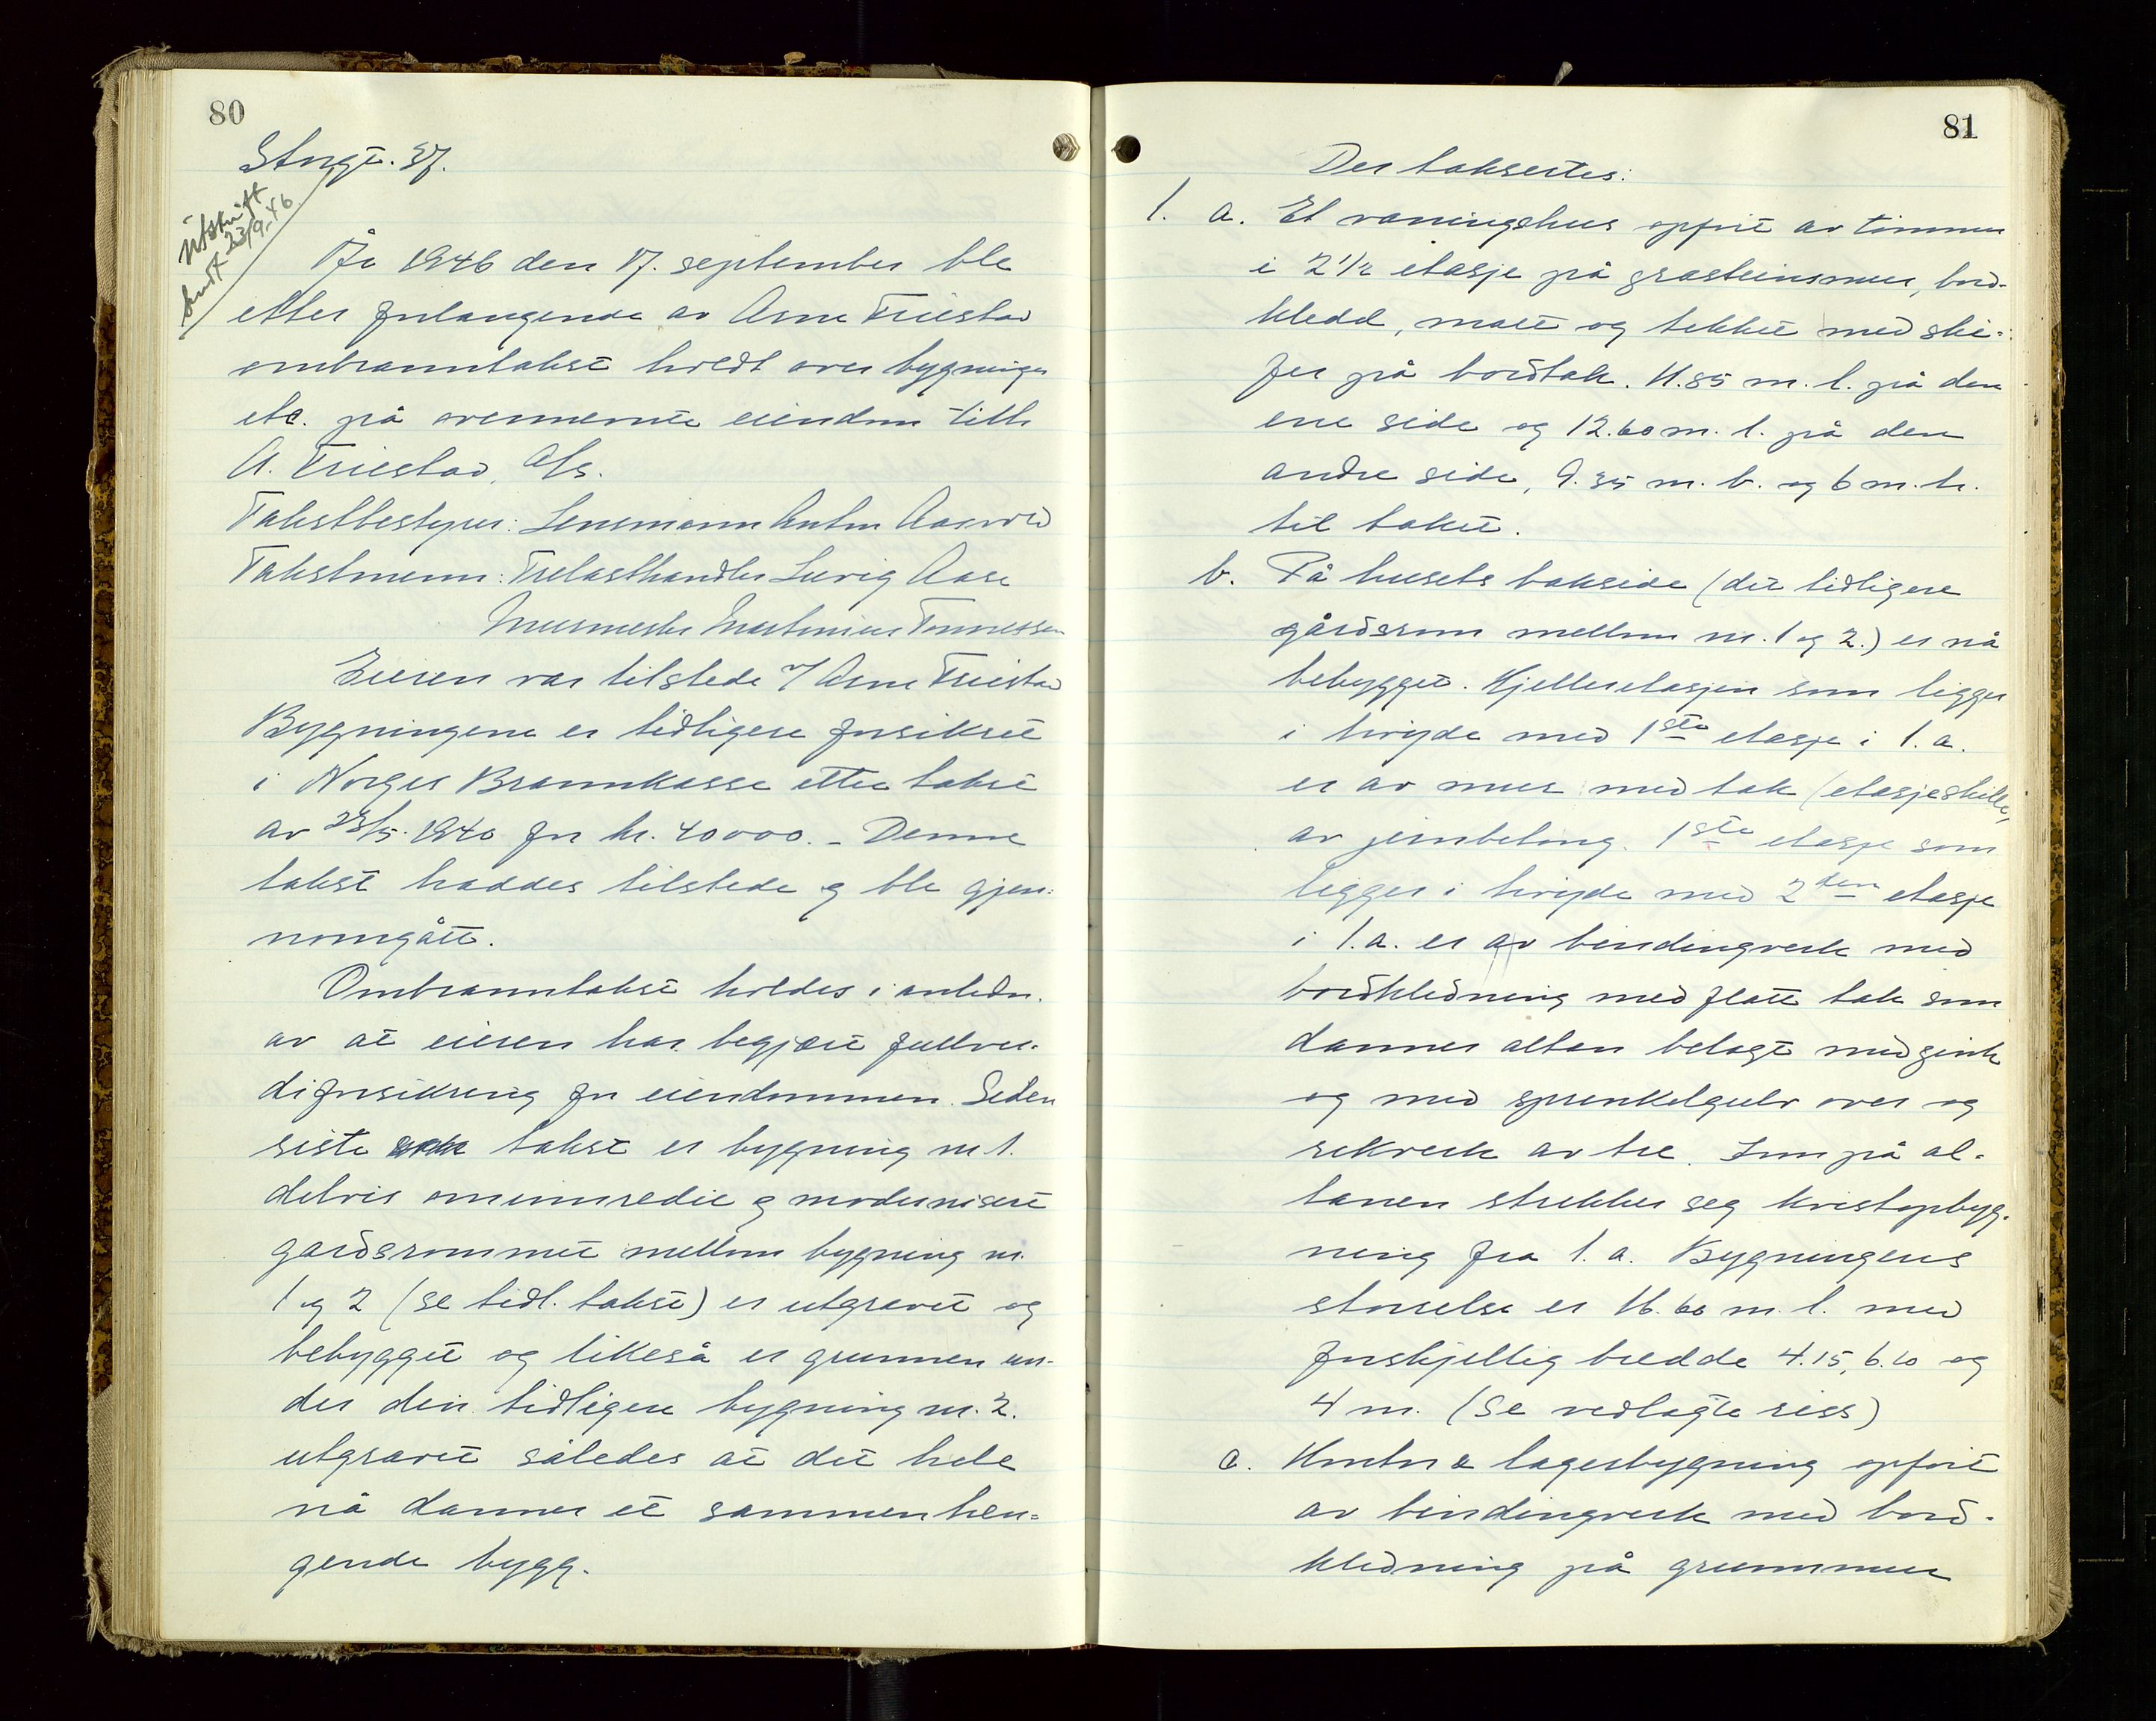 80
Stngt. 37.
Utskrift
sendt 23/9-46
År 1946 den 17. september ble
etter forlangende av Arne Friestad
ombranntakst holdt over bygninger
etc. på ovennevnte eiendom tilh.
A. Friestad, A/s.
Takstbestyrer: Lensmann Anton
Takstmenn: Trelasthandler Lurig Aase
Murmester Martinius Tønnessen
Eieren var tilstede v/ Arne Friestad
Bygningene er tidligere forsikret
i Norges Brannkasse etter takst
av 23/5. 1940 for kr. 40000.- Denne
takst haddes tilstede og ble gjen-
nomgått.
Ombranntakst holdes i anledn.
av at eieren har begjært fullver-
diforsikring for eiendommen. Siden
siste takst er bygning nr 1.
delvis ominnredet og modernisert
gårdsrommet mellom bygning nr.
1 og 2 (se tidl. takst) er utgravet og
bebygget og likeså er grunnen un-
der den tidligere bygning nr. 2.
utgravet således at det hele
nå danner et sammenhen-
gende bygg.
81
Der taksertes:
1. a. Et våningshus oppført av tømmer
i 2 1/2 etasje på gråsteinsmur, bord-
kledd, malt og tekket med ski-
fer på bordtak. 11.85 m. l. på den
ene side og 12.60 m. l. på den
andre side, 9.35 m. b. og 6 m. h.
til taket.
b. På husets bakside (det tidligere
gårdsrom mellom nr. 1 og 2.) er nå
bebygget. Kjelleretasjen som ligger
i høyde med 1ste etasje i 1. a.
er av mur med tak (etasjeskille)
av jernbetong. 1ste etasje som
ligger i høyde med 2den etasje
i 1. a. er av bindingverk med
bordkledning med flatt tak som
danner altan belagt med zink
og med sprinkelgulv over og
rekverk av tre. Inn på al-
tanen strekker seg kvistopbyg-
ning fra 1. a. Bygningens
størrelse er 16.60 m. l. med
forskjellig bredde 4.15, 6.10 og
4 m. (Se vedlagte riss)
c. Kontor & lagerbygning oppført
av bindingverk med bord-
kledning på grunnmur